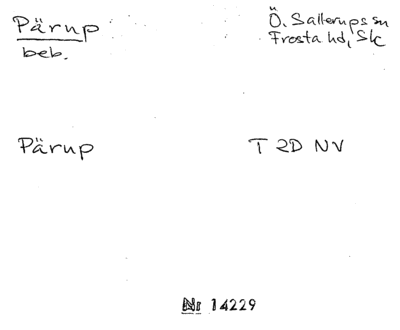 Pärup
beb.
Ö. Sallerups sn
Frosta hd, Sk
Pärup
T 2D NV
Nr 14229